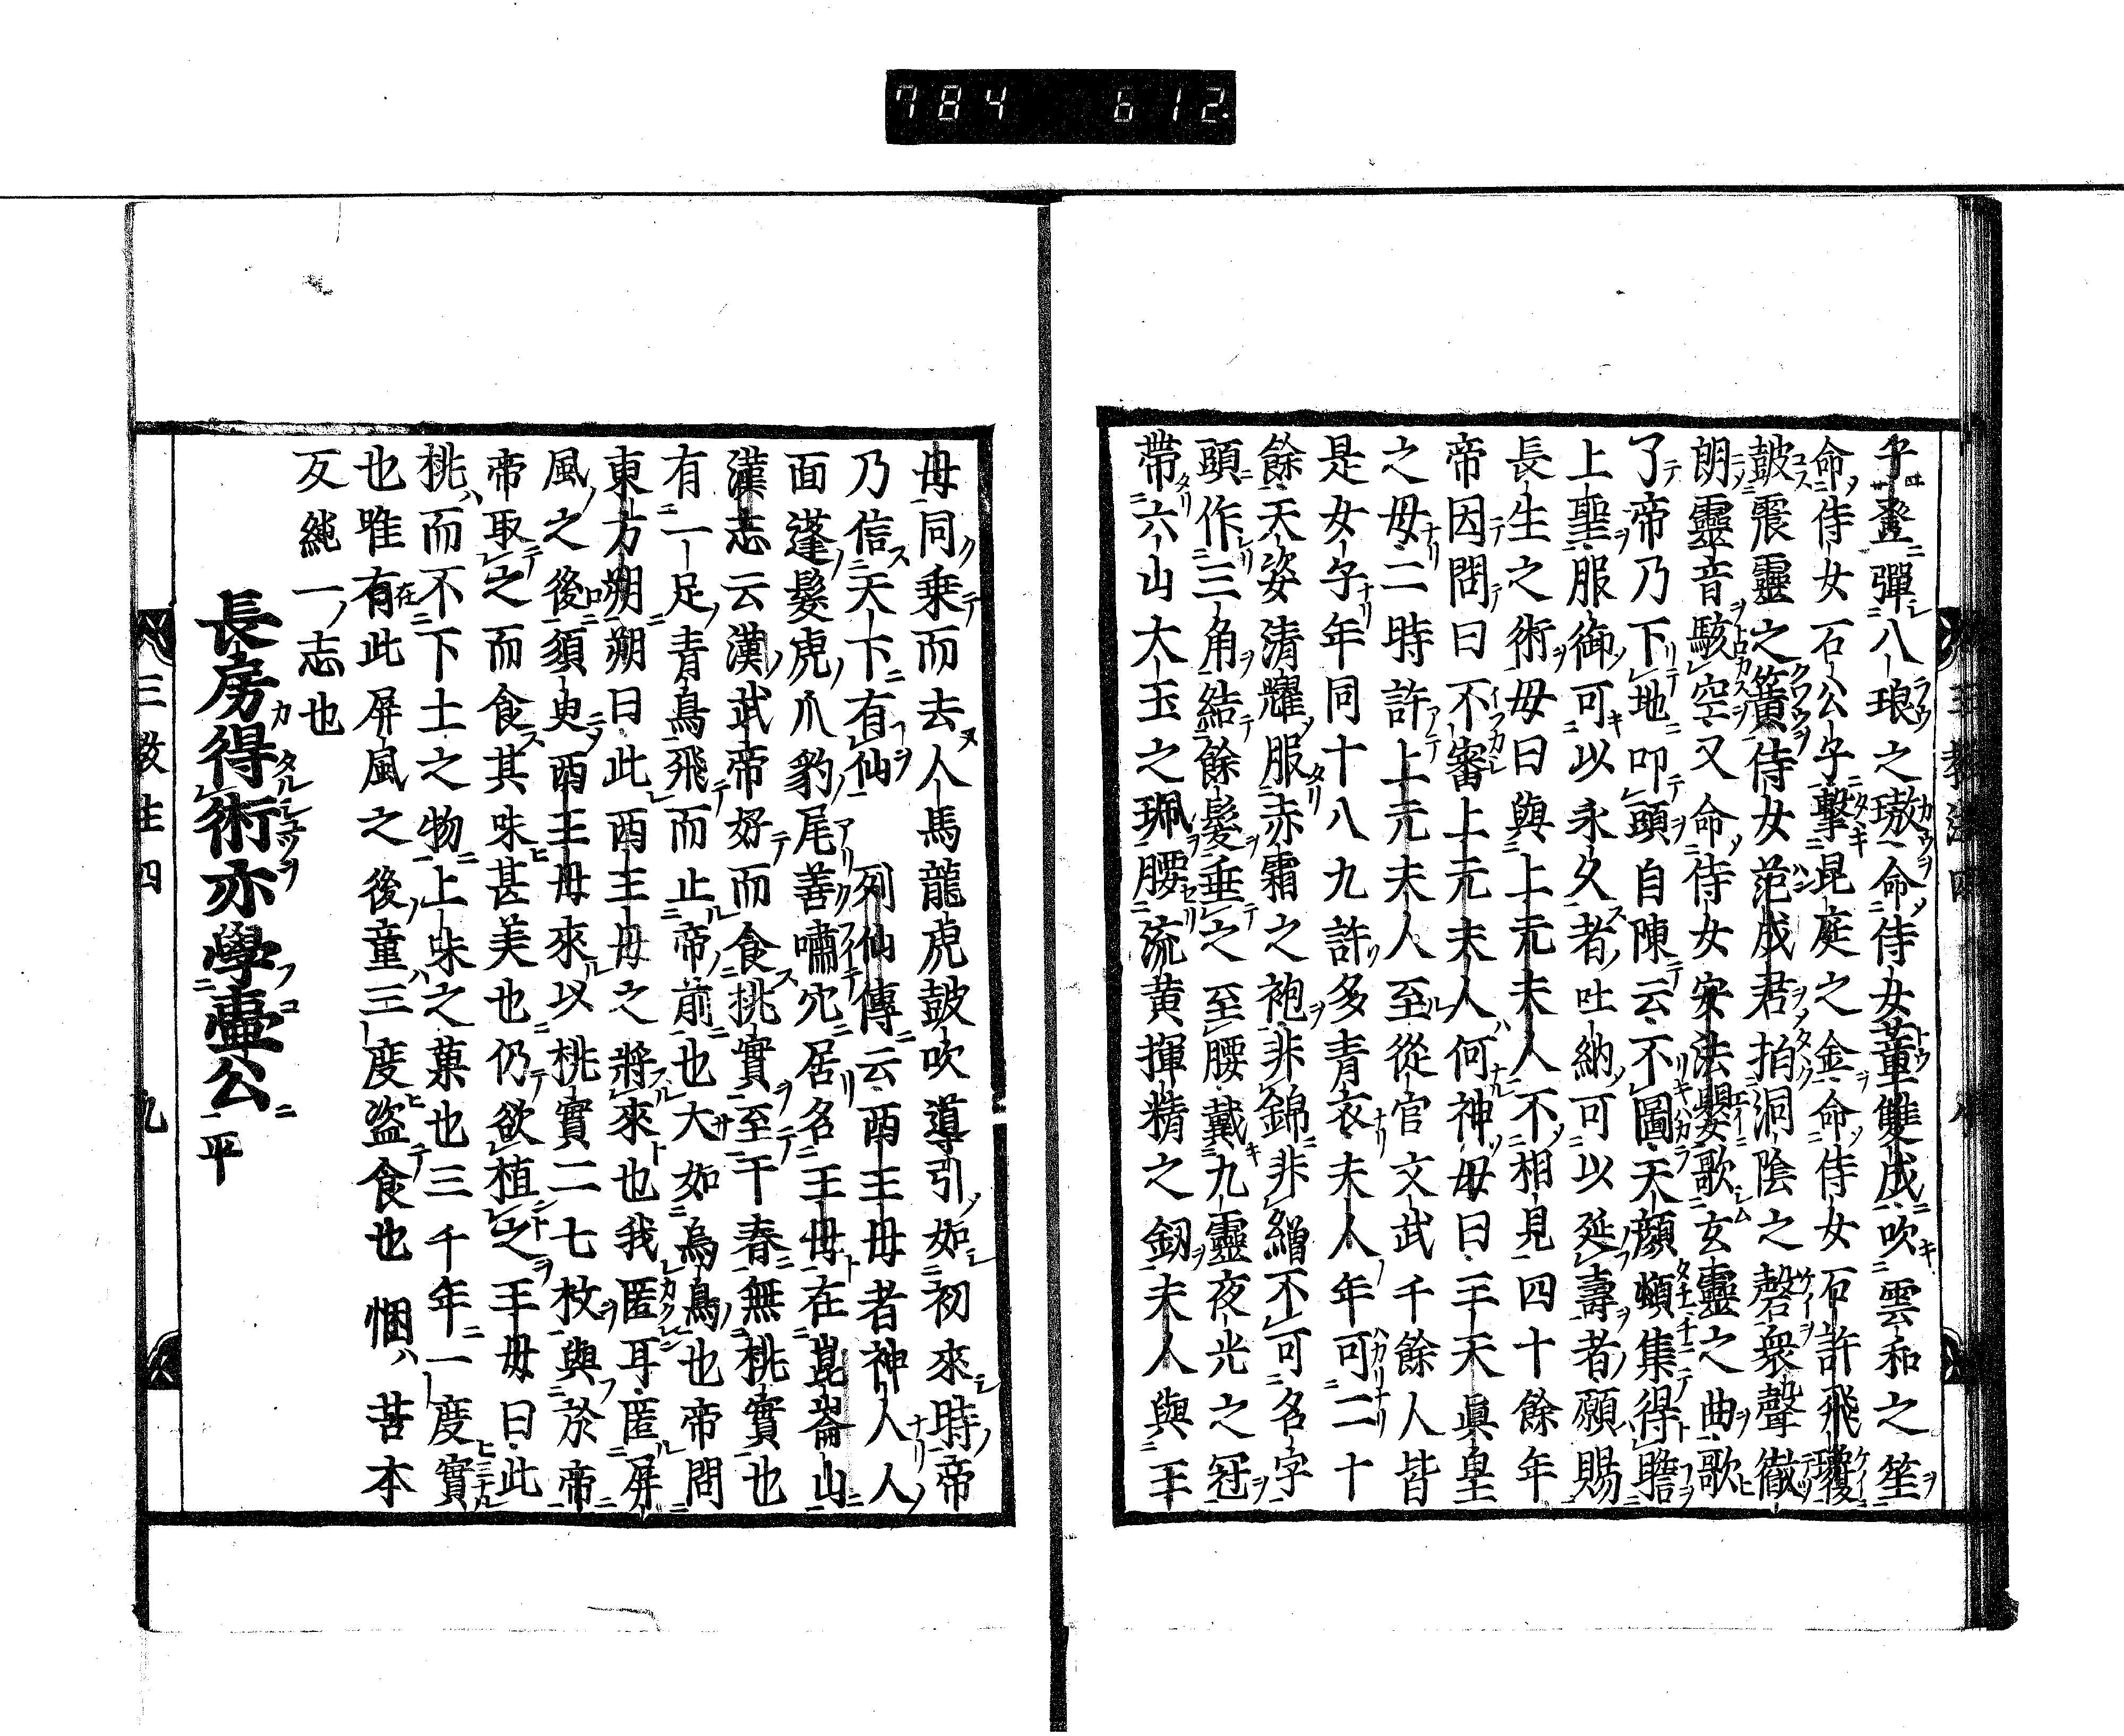 784 612
子登彈八琅之璈命侍女董雙成吹雲和之笙
命侍女石公子擊昆庭之金命侍女石許飛瓊
鼓震靈之簧侍女范成君拍洞陰之磬衆聲徹
朗靈音駭空又命侍女安法嬰歌玄靈之曲歌
了帝乃下地叩頭自陳云不圖天顔頓集得瞻
上聖服御可以永久者吐納可以延壽者願賜
長生之術母曰與上元夫人不相見四十餘年
帝因問曰不審上元夫人何神母曰三天眞皇
之母二時許上元夫人至從官文武千餘人皆
是女子年同十八九許多青衣夫人年可二十
餘天姿清耀服赤霜之袍非錦非繒不可名字
頭作三角結餘髮垂之至腰戴九靈夜光之冠
帶六山大玉之珮腰流黄揮精之劔夫人與王
母同乘而去人馬龍虎鼓吹導引如初來時帝
乃信天下有仙 列仙傳云西王母者神人人
面蓬髮虎爪豹尾善嘯穴居名王母在崑崙山
漢志云漢武帝好而食桃實至干春無桃實也
有一足青鳥飛而止帝前也大如烏鳥也帝問
東方朔朔曰此西王母之將來也我匿耳匿屏
風之後須臾西王母來以桃實二七枚與於帝
帝取之而食其味甚美也仍欲植之王母曰此
桃而不下土之物上味之菓也三千年一度實
也唯有此屏風之後童三度盗食也 悃苦本
反純一志也
長房得術亦學壷公 平
三教注四 九